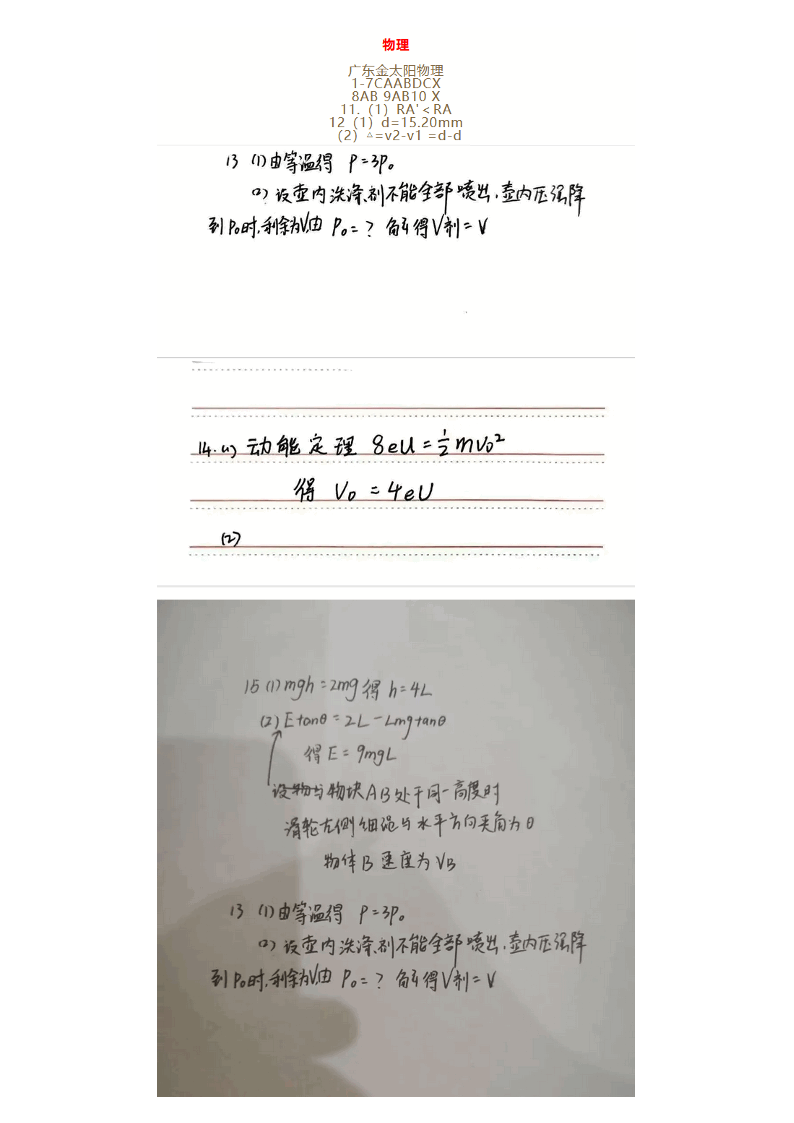 物理
广东金太阳物理
1-7CAABDCX
8AB 9AB10 X
11.（1）RA'＜RA
12（1）d=15.20mm
（2）△=v2-v1 =d-d
13 (1)由等温得 P=3P₀
(2) 设壶内洗涤剂不能全部喷出,壶内压强降
到P₀时,剩余为V,由 P₀=? 解得V剩=V
14.(1) 动能定理 8eU=½mv₀²
得 V₀=4eU
(2)
15 (1) mgh=2mg 得 h=4L
(2) Etanθ=2L-Lmgtanθ
得 E=9mgL
设物与物块AB处于同一高度时
滑轮左侧细绳与水平方向夹角为θ
物体B速度为VB
13 (1)由等温得 P=3P₀
(2) 设壶内洗涤剂不能全部喷出,壶内压强降
到P₀时,剩余为V,由 P₀=? 解得V剩=V